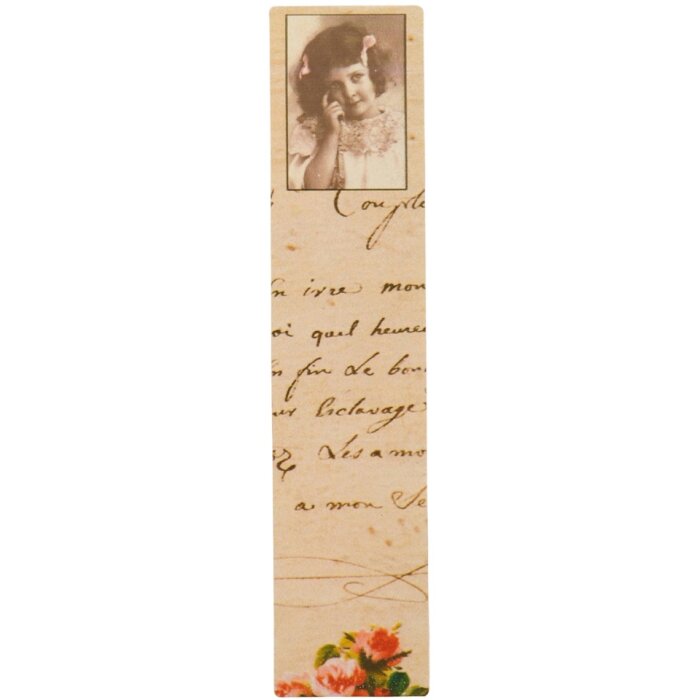 Couple
n ivre mon
oi quel heure
n fin Le bon
ur Esclavage
Les amo
a mon Se